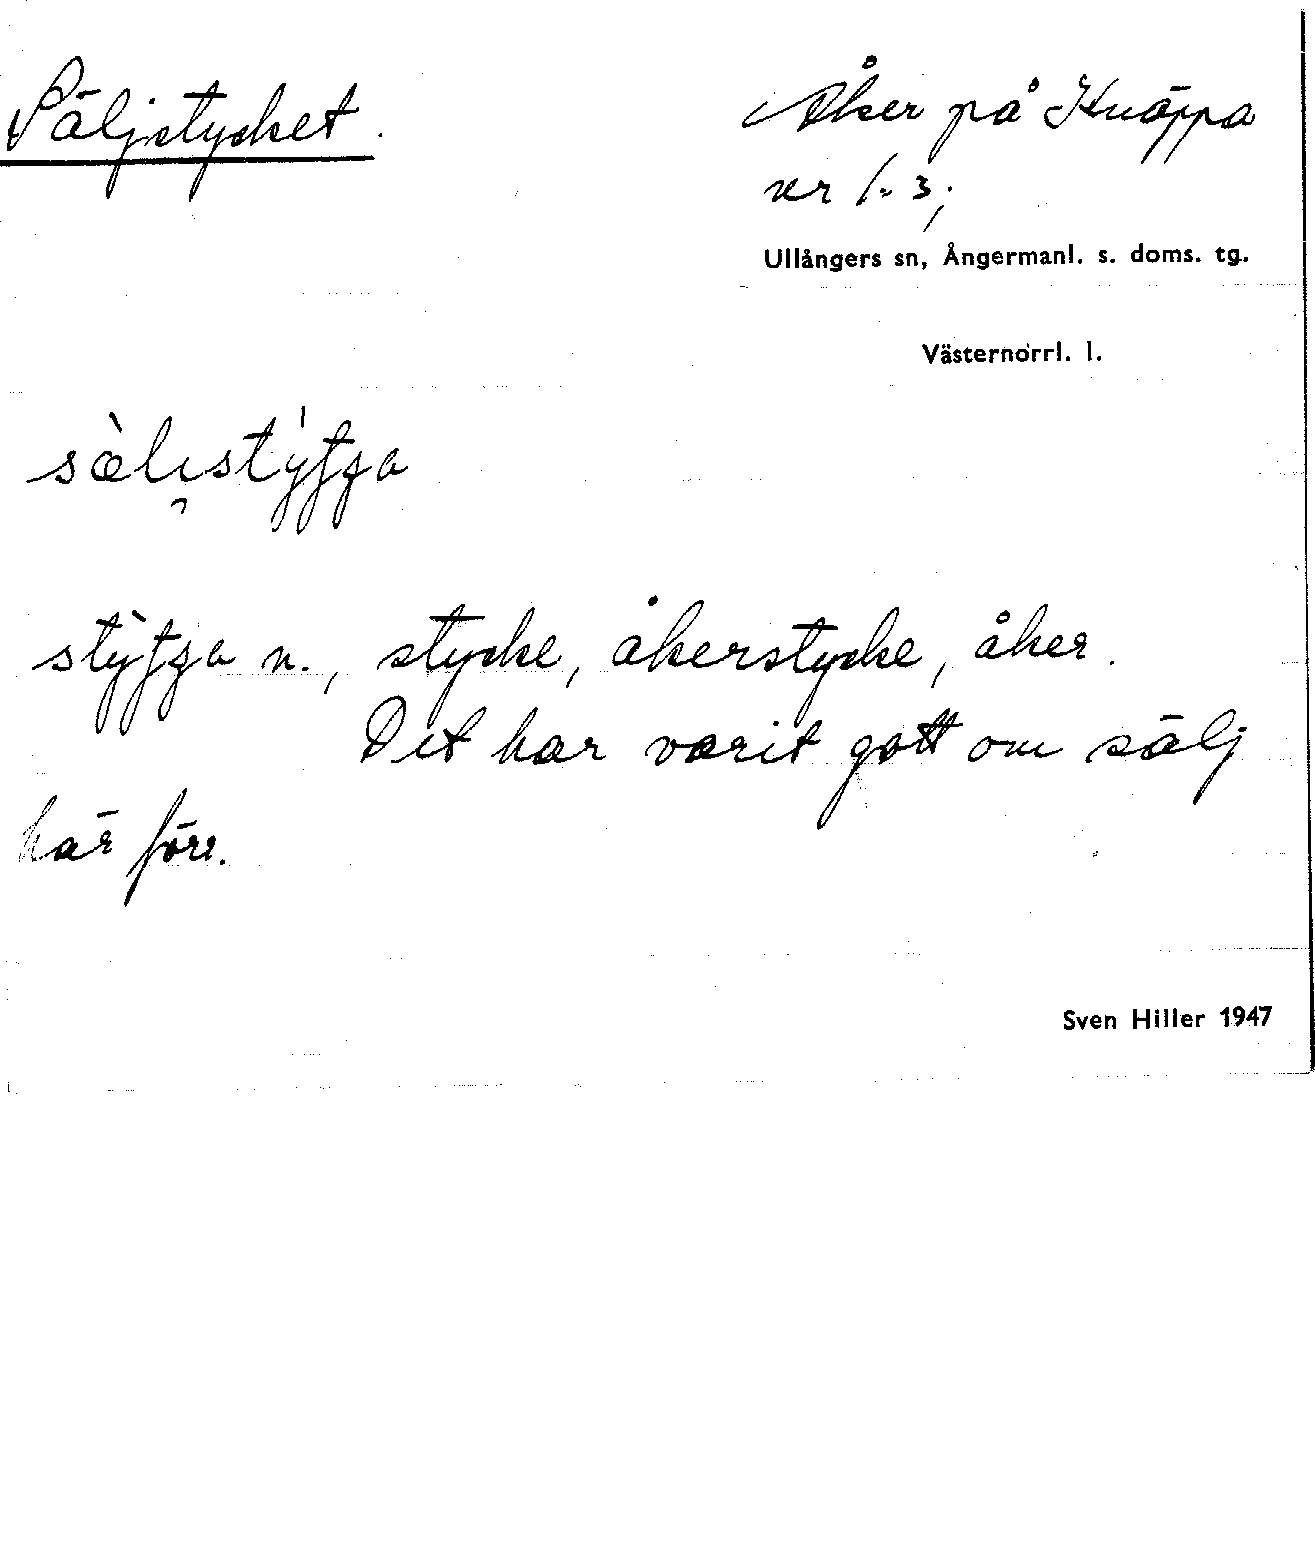 Säljstycket.
Åker på Knäppa
nr 1-3,
Ullångers sn, Ångermanl. s. doms. tg.
Västernorrl. l.
n., stycke, åkerstycke, åker.
Det har varit gott om sälj
här förr.
Sven Hiller 1947